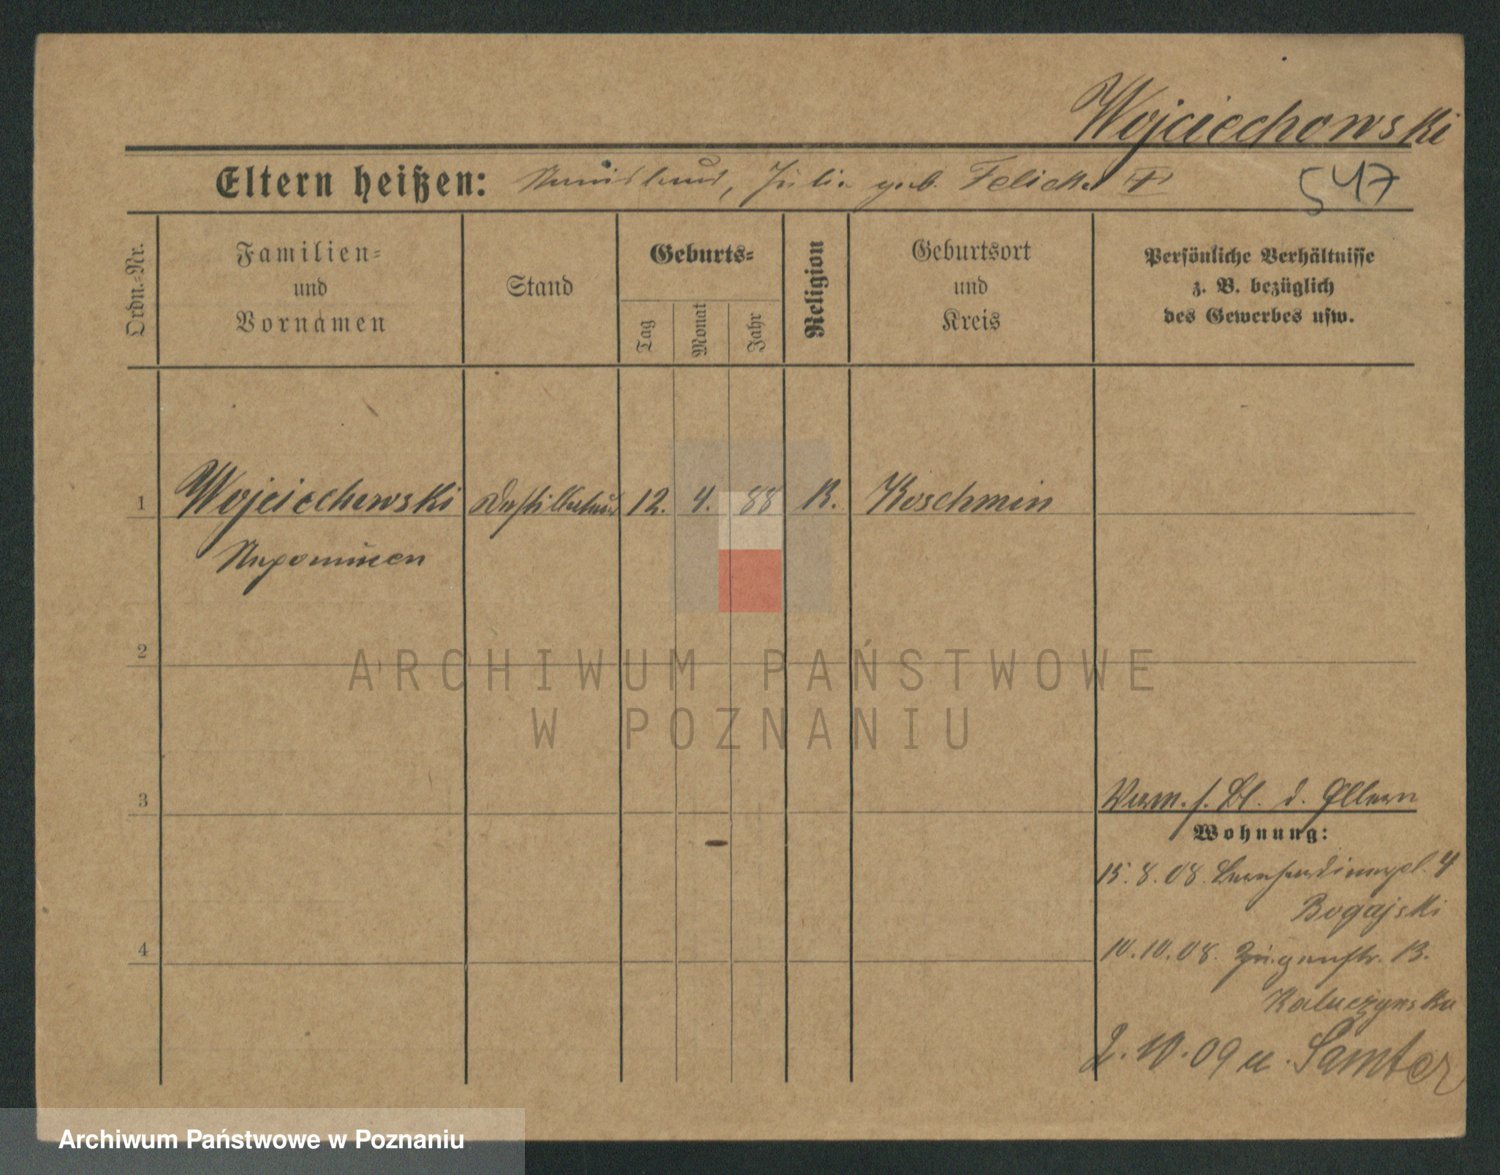 Wojciechowski
Eltern heißen: Julia geb. Felicka
547
Ordn.-Nr.
Familien-
und
Vornamen
Stand
Geburts-
Tag
Monat
Jahr
Religion
Geburtsort
und
Kreis
Persönliche Verhältnisse
z. B. bezüglich
des Gewerbes usw.
1 Wojciechowski Destillateur 12. 4. 88 K. Koschmin
Nepomucen
2
ARCHIWUM PAŃSTWOWE
W POZNANIU
3
Verm. s. Bl. d. Eltern
Wohnung:
15.8.08. Bernhardinerpl. 4
Bogajski
4
10.10.08.
Kaluczynska
2.10.09 n. Samter
Archiwum Państwowe w Poznaniu